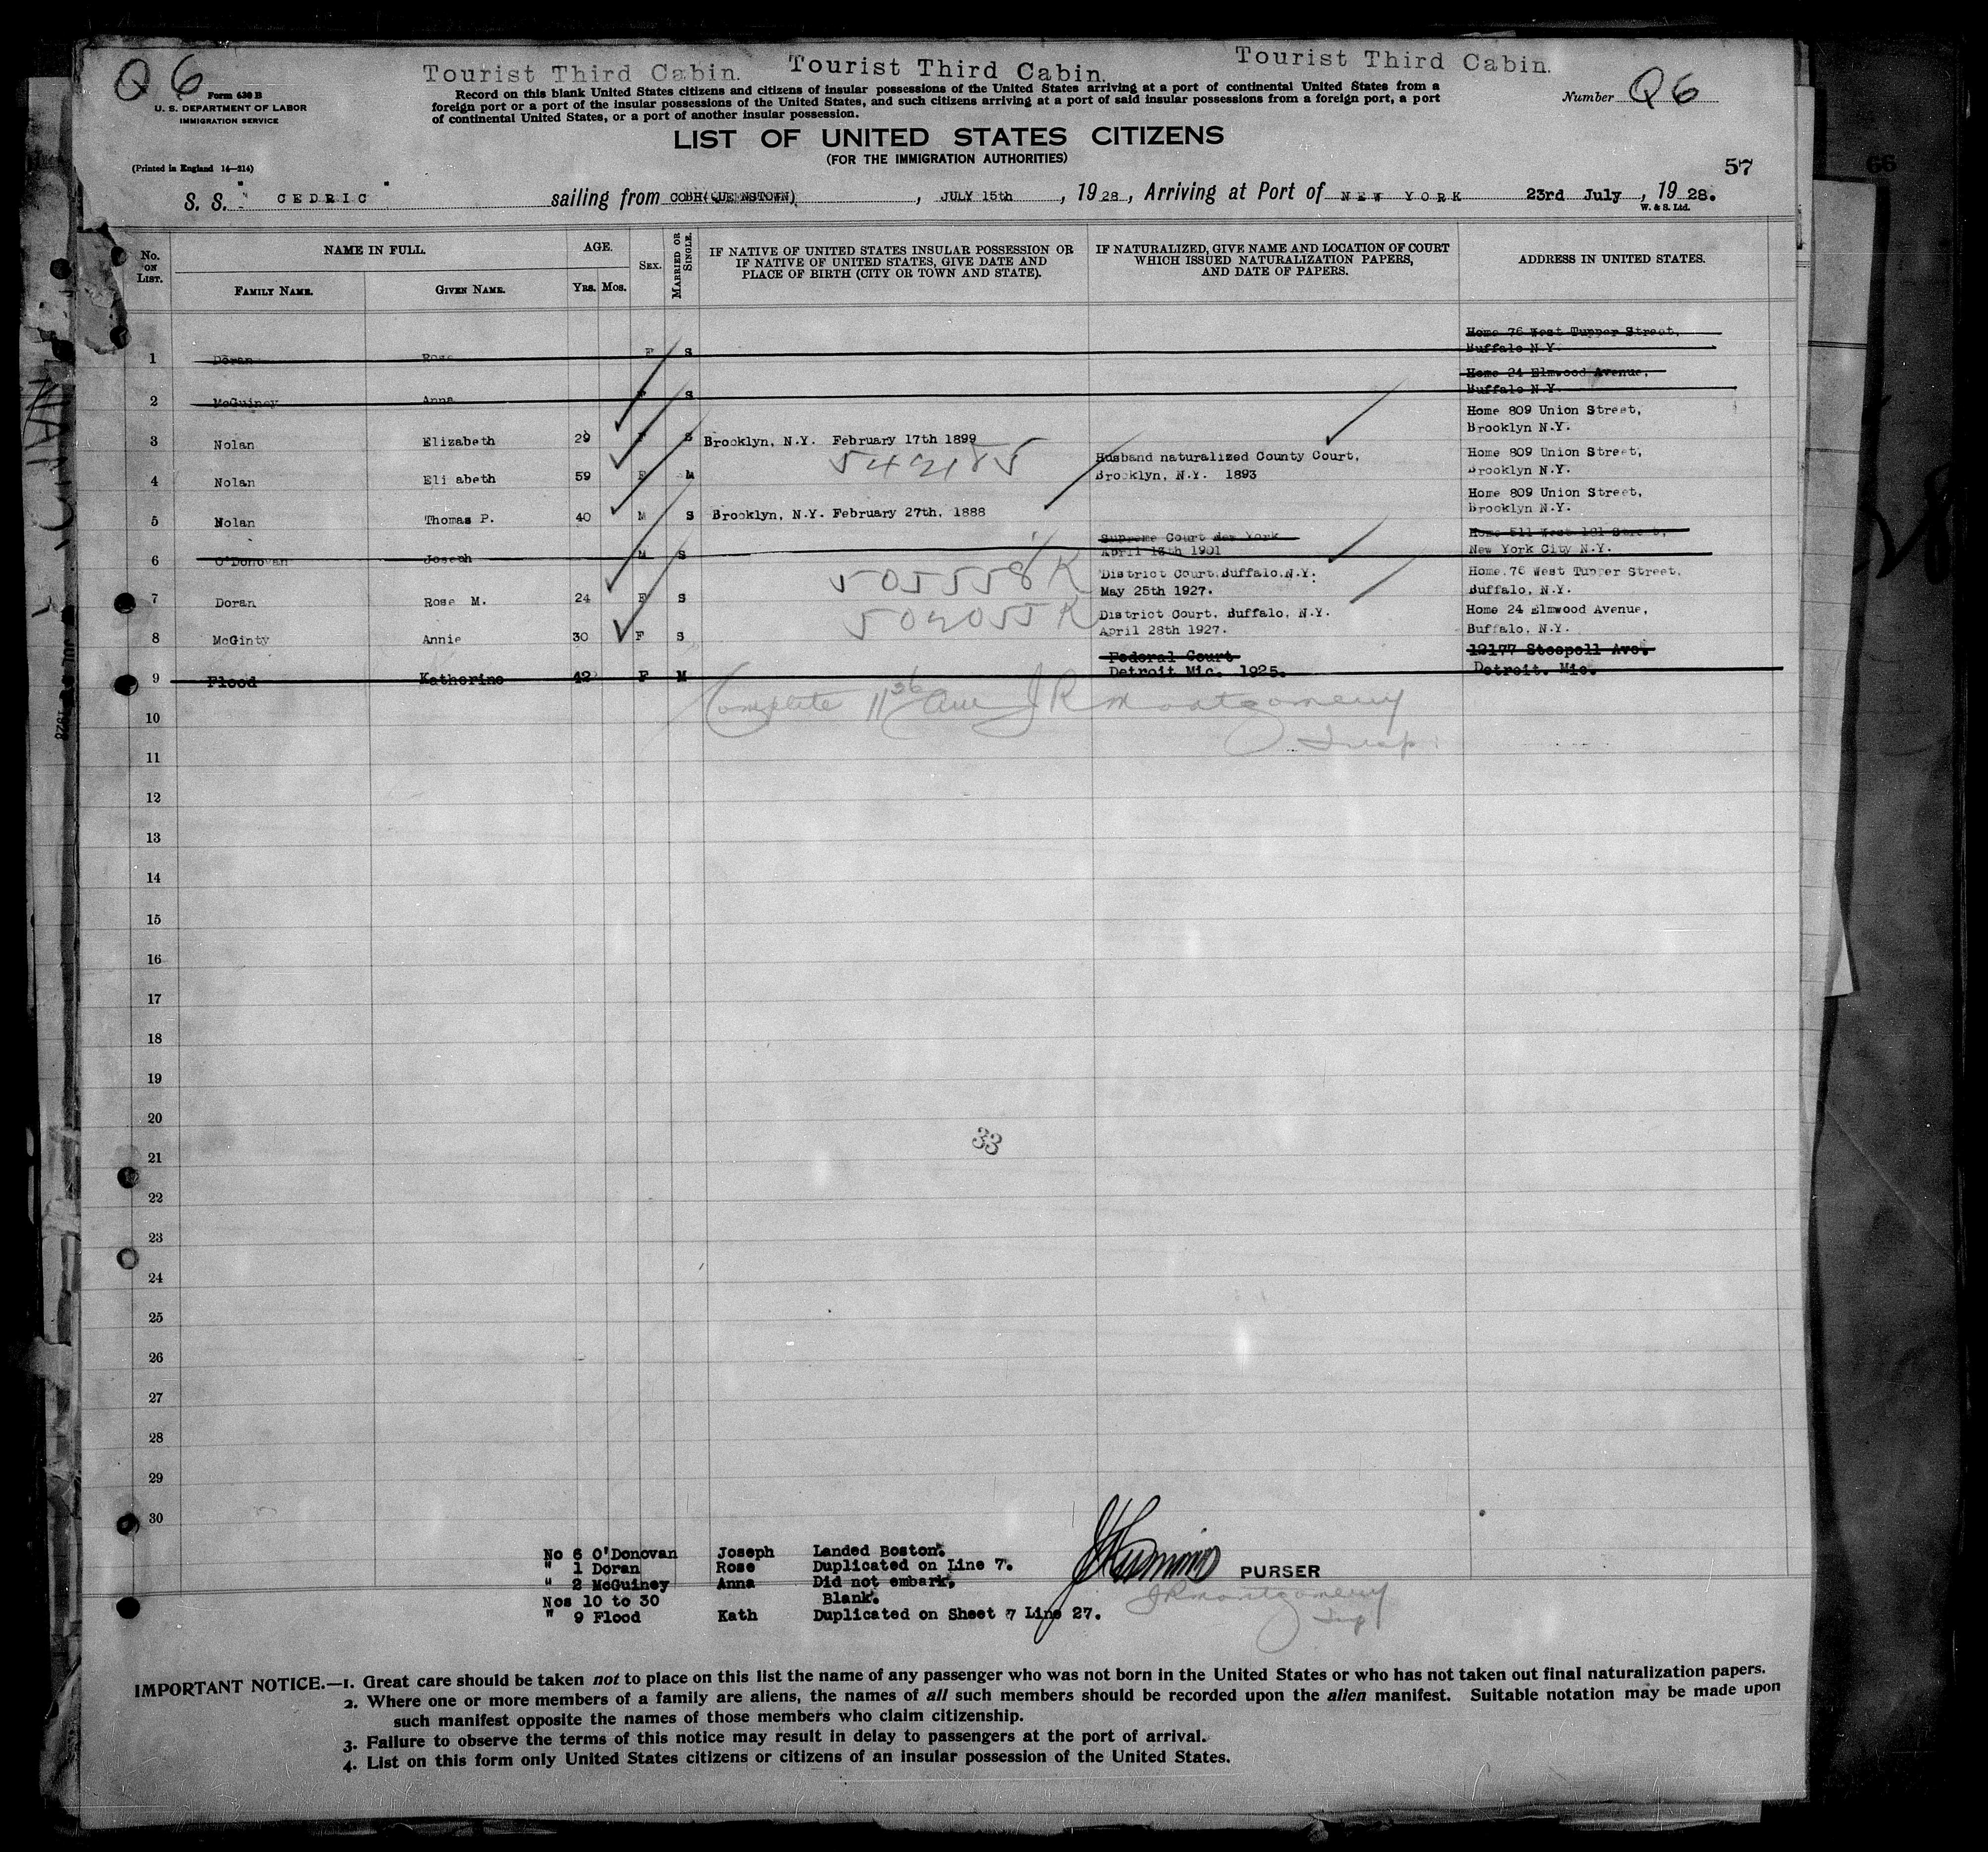 Q 6
Tourist Third Cabin. Tourist Third Cabin. Tourist Third Cabin.
Form 630 B
U. S. DEPARTMENT OF LABOR
IMMIGRATION SERVICE
Record on this blank United States citizens and citizens of insular possessions of the United States arriving at a port of continental United States from a
foreign port or a port of the insular possessions of the United States, and such citizens arriving at a port of said insular possessions from a foreign port, a port
of continental United States, or a port of another insular possession.
Number Q6
LIST OF UNITED STATES CITIZENS
(FOR THE IMMIGRATION AUTHORITIES)
(Printed in England 14—214)
57
66
S. S. " CEDRIC " sailing from COBH(QUE NSTOWN), JULY 15th, 1928, Arriving at Port of NEW YORK 23rd July, 1928.
W. & S. Ltd.
No. ON LIST. NAME IN FULL. AGE. SEX. MARRIED OR SINGLE. IF NATIVE OF UNITED STATES INSULAR POSSESSION OR IF NATIVE OF UNITED STATES, GIVE DATE AND PLACE OF BIRTH (CITY OR TOWN AND STATE). IF NATURALIZED, GIVE NAME AND LOCATION OF COURT WHICH ISSUED NATURALIZATION PAPERS, AND DATE OF PAPERS. ADDRESS IN UNITED STATES.
FAMILY NAME. GIVEN NAME. YRS. MOS.
Home 76 West Tupper Street,
1 Doran Rose F S Buffalo N.Y.
Home 24 Elmwood Avenue,
2 McGuiney Anna F S Buffalo N.Y.
Home 809 Union Street,
3 Nolan Elizabeth 29 F S Brooklyn, N.Y. February 17th 1899 Brooklyn N.Y.
542185 Husband naturalized County Court, Home 809 Union Street,
4 Nolan Eli abeth 59 F M Brooklyn, N.Y. 1893 Brooklyn N.Y.
Home 809 Union Street,
5 Nolan Thomas P. 40 M S Brooklyn, N.Y. February 27th, 1888 Brooklyn N.Y.
Supreme Court New York Home 511 West 181 Street,
6 O'Donovan Joseph M S April 13th 1901 New York City N.Y.
505558 K District Court, Buffalo, N.Y. Home. 76 West Tupper Street,
7 Doran Rose M. 24 F S May 25th 1927. Buffalo, N.Y.
502055 K District Court, Buffalo, N.Y. Home 24 Elmwood Avenue,
8 McGinty Annie 30 F S April 28th 1927. Buffalo, N.Y.
Federal Court 12177 Stoepell Ave.
9 Flood Katherine 42 F M Detroit Mic. 1925. Detroit. Mic.
Complete J R Montgomery
Insp.
10
11
12
13
14
15
16
17
18
19
20
33
21
22
23
24
25
26
27
28
29
30
No 6 O'Donovan Joseph Landed Boston.
" 1 Doran Rose Duplicated on Line 7.
" 2 McGuiney Anna Did not embark.
Nos 10 to 30 Blank.
" 9 Flood Kath Duplicated on Sheet 7 Line 27.
PURSER
J R Montgomery
Insp
IMPORTANT NOTICE.—1. Great care should be taken not to place on this list the name of any passenger who was not born in the United States or who has not taken out final naturalization papers.
2. Where one or more members of a family are aliens, the names of all such members should be recorded upon the alien manifest. Suitable notation may be made upon
such manifest opposite the names of those members who claim citizenship.
3. Failure to observe the terms of this notice may result in delay to passengers at the port of arrival.
4. List on this form only United States citizens or citizens of an insular possession of the United States.